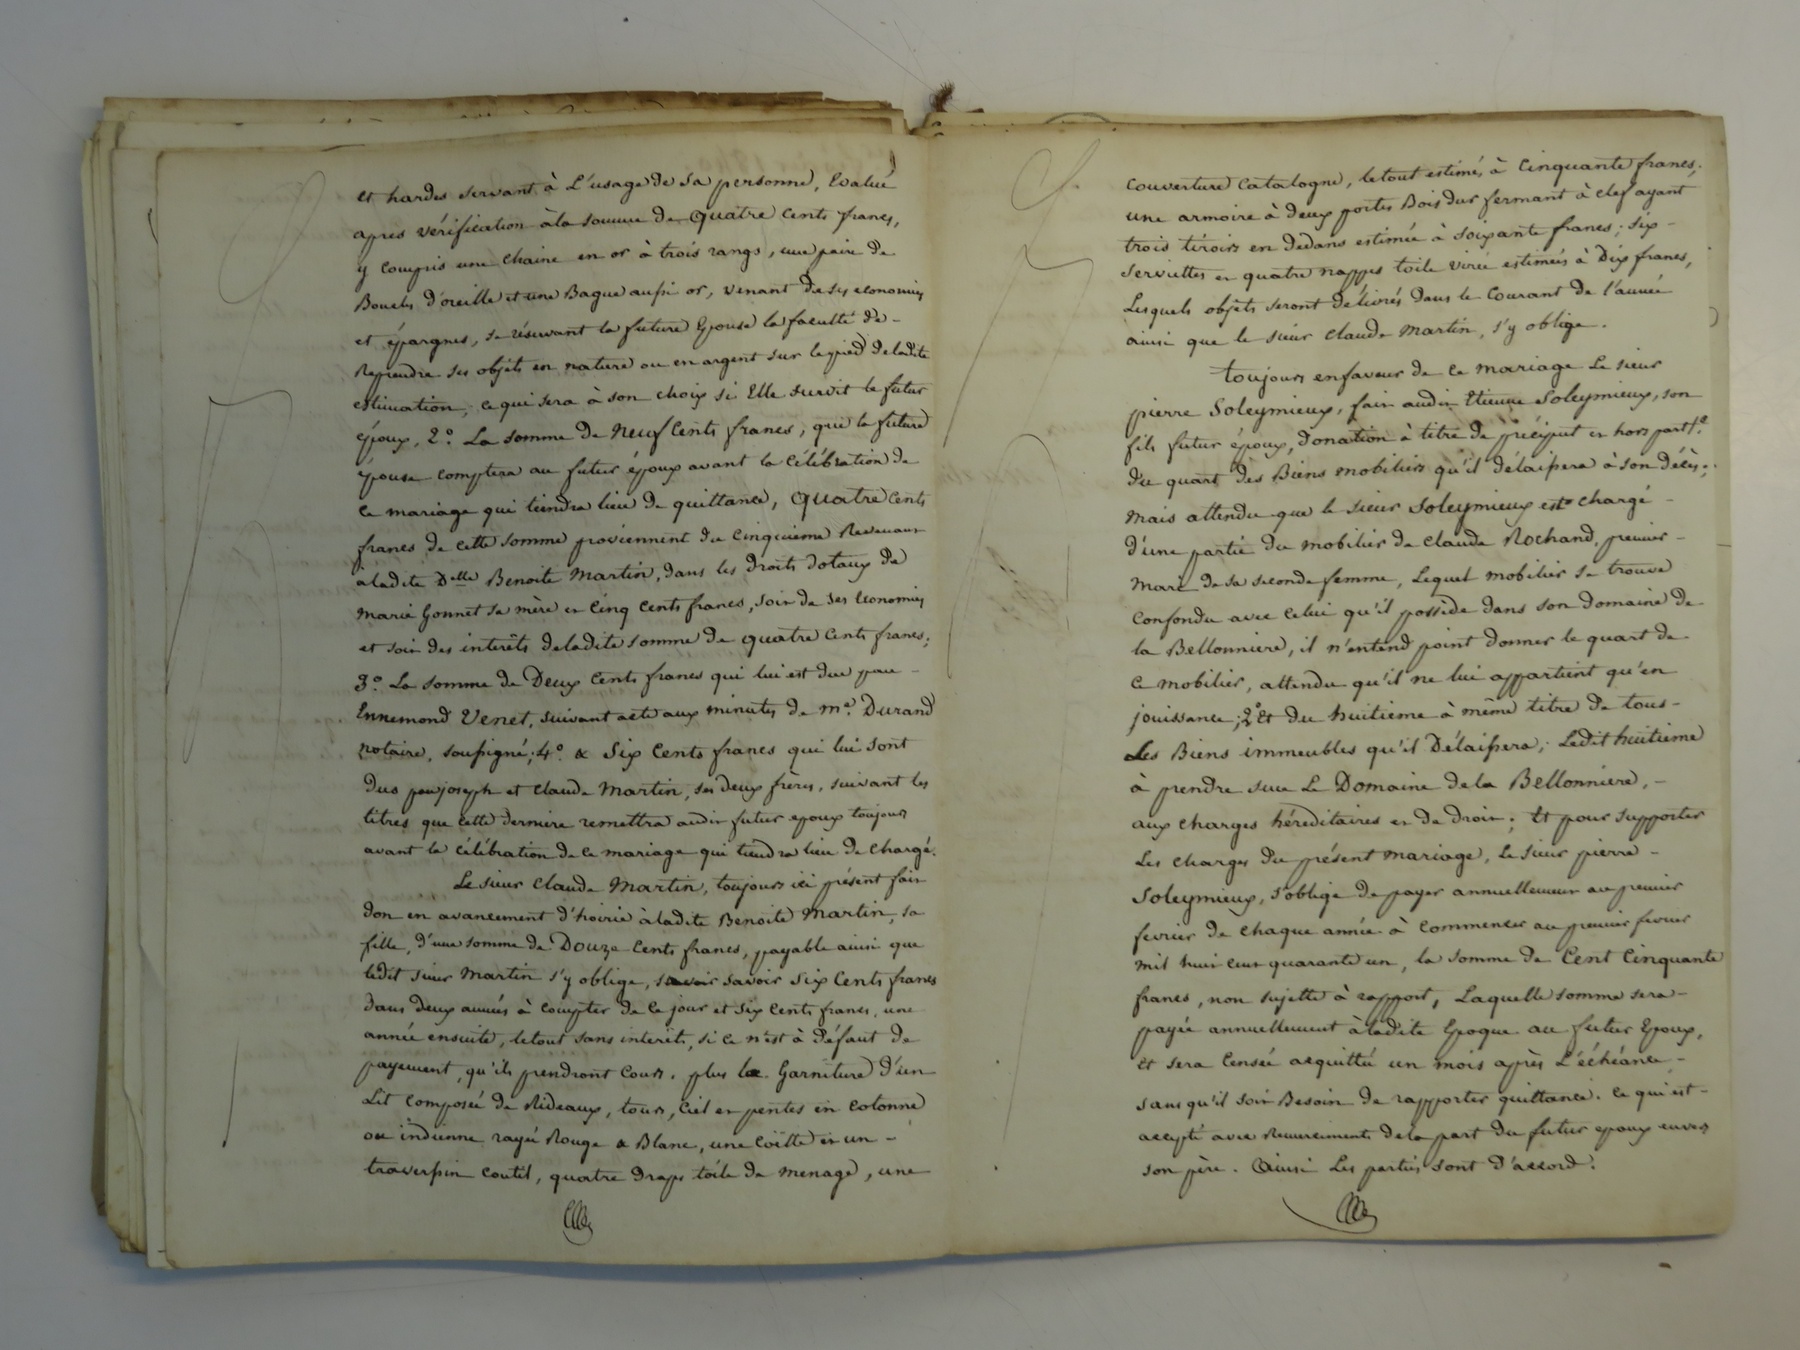 et hardes servant à L'usage de sa personne, Evalué
apres vérification à la somme de Quatre Cents francs,
y compris une chaine en or à trois rangs, une paire de
Boucles d'oreille et une Bague aussi or, venant de ses economies
et épargnes, se réservant la future Epouse la faculté de -
Reprendre ses objets en nature ou en argent sur le pied de ladite
estimation, ce qui sera à son choix si Elle survit le futur
époux, 2.o La somme de Neuf Cents francs, que la future
épouse comptera au futur époux avant la Célébration de
ce mariage qui tiendra lieu de quittance, Quatre Cents
francs de cette somme proviennent du Cinquieme Revenant
à ladite Delle Benoite Martin, dans les droits dotaux de
Marie Gonnet sa mère et Cinq Cents francs, soit de ses Economies
et soit des interêts de ladite somme de quatre Cents francs;
3.o La somme de Deux Cents francs qui lui est due par -
Ennemond Venet, suivant acte aux minutes de me. Durand
notaire, soussigné; 4.o & Six Cents francs qui lui sont
dus par joseph et Claude Martin, ses deux frères, suivant les
titres que cette derniere remettra audit futur epoux toujours
avant la célébration de ce mariage qui tiendra lieu de chargé.
Le sieur Claude Martin, toujours ici présent fait
don en avancement d'hoirie à ladite Benoite Martin, sa
fille, d'une somme de Douze Cents francs, payable ainsi que
ledit sieur Martin s'y oblige, savoir savoir Six Cents francs
dans deux années à compter de ce jour et Six Cents francs, une
année ensuite, le tout sans interêts, si ce n'est à défaut de
payement, qu'ils prendront Cours. plus la Garniture d'un
Lit composé de Rideaux, tours, Ciel et pentes en Cotonne
ou indienne rayé Rouge & Blanc, une Coïtte et un -
traverssin Coutil, quatre draps toile de menage, une
Couverture Catalogne, le tout estimés à Cinquante francs;
une armoire à deux portes Bois dur fermant à clef ayant
trois tiroirs en dedans estimée à soixante francs; six -
serviettes et quatre nappes toile virée estimées à Dix francs,
Lesquels objets seront délivrés dans le Courant de l'année
ainsi que le sieur Claude Martin, s'y oblige.
toujours en faveur de ce mariage Le sieur
pierre Soleymieux, fait audit Etienne Soleymieux, son
fils futur époux, donation à titre de préciput et hors part
du quart des Biens mobiliers qu'il délaissera à son décès;
Mais attendu que le sieur Soleymieux est chargé -
d'une partie du mobilier de Claude Rochand, premier -
Mari de sa seconde femme, Lequel mobilier se trouve
Confondu avec Celui qu'il possède dans son domaine de
la Bellonniere, il n'entend point donner le quart de
Ce mobilier, attendu qu'il ne lui appartient qu'en
jouissance; 2o Et du huitieme à même titre de tous -
Les Biens immeubles qu'il Délaissera; Ledit huitieme
à prendre sur Le Domaine de la Bellonniere, -
aux charges héreditaires et de droit; Et pour supporter
Les charges du présent mariage, Le sieur pierre -
Soleymieux, s'oblige de payer annuellement au premier
fevrier de chaque année à Commencer au premier fevrier
mil huit cent quarante un, la somme de Cent Cinquante
francs, non sujette à rapport, Laquelle somme sera -
payée annuellement à ladite Epoque au futur Epoux,
et sera Censée acquittée un mois après L'échéance -
sans qu'il soit Besoin de rapporter quittance. Ce qui est -
accepté avec Remerciments de la part du futur epoux envers
son père. Ainsi Les parties sont d'accord.